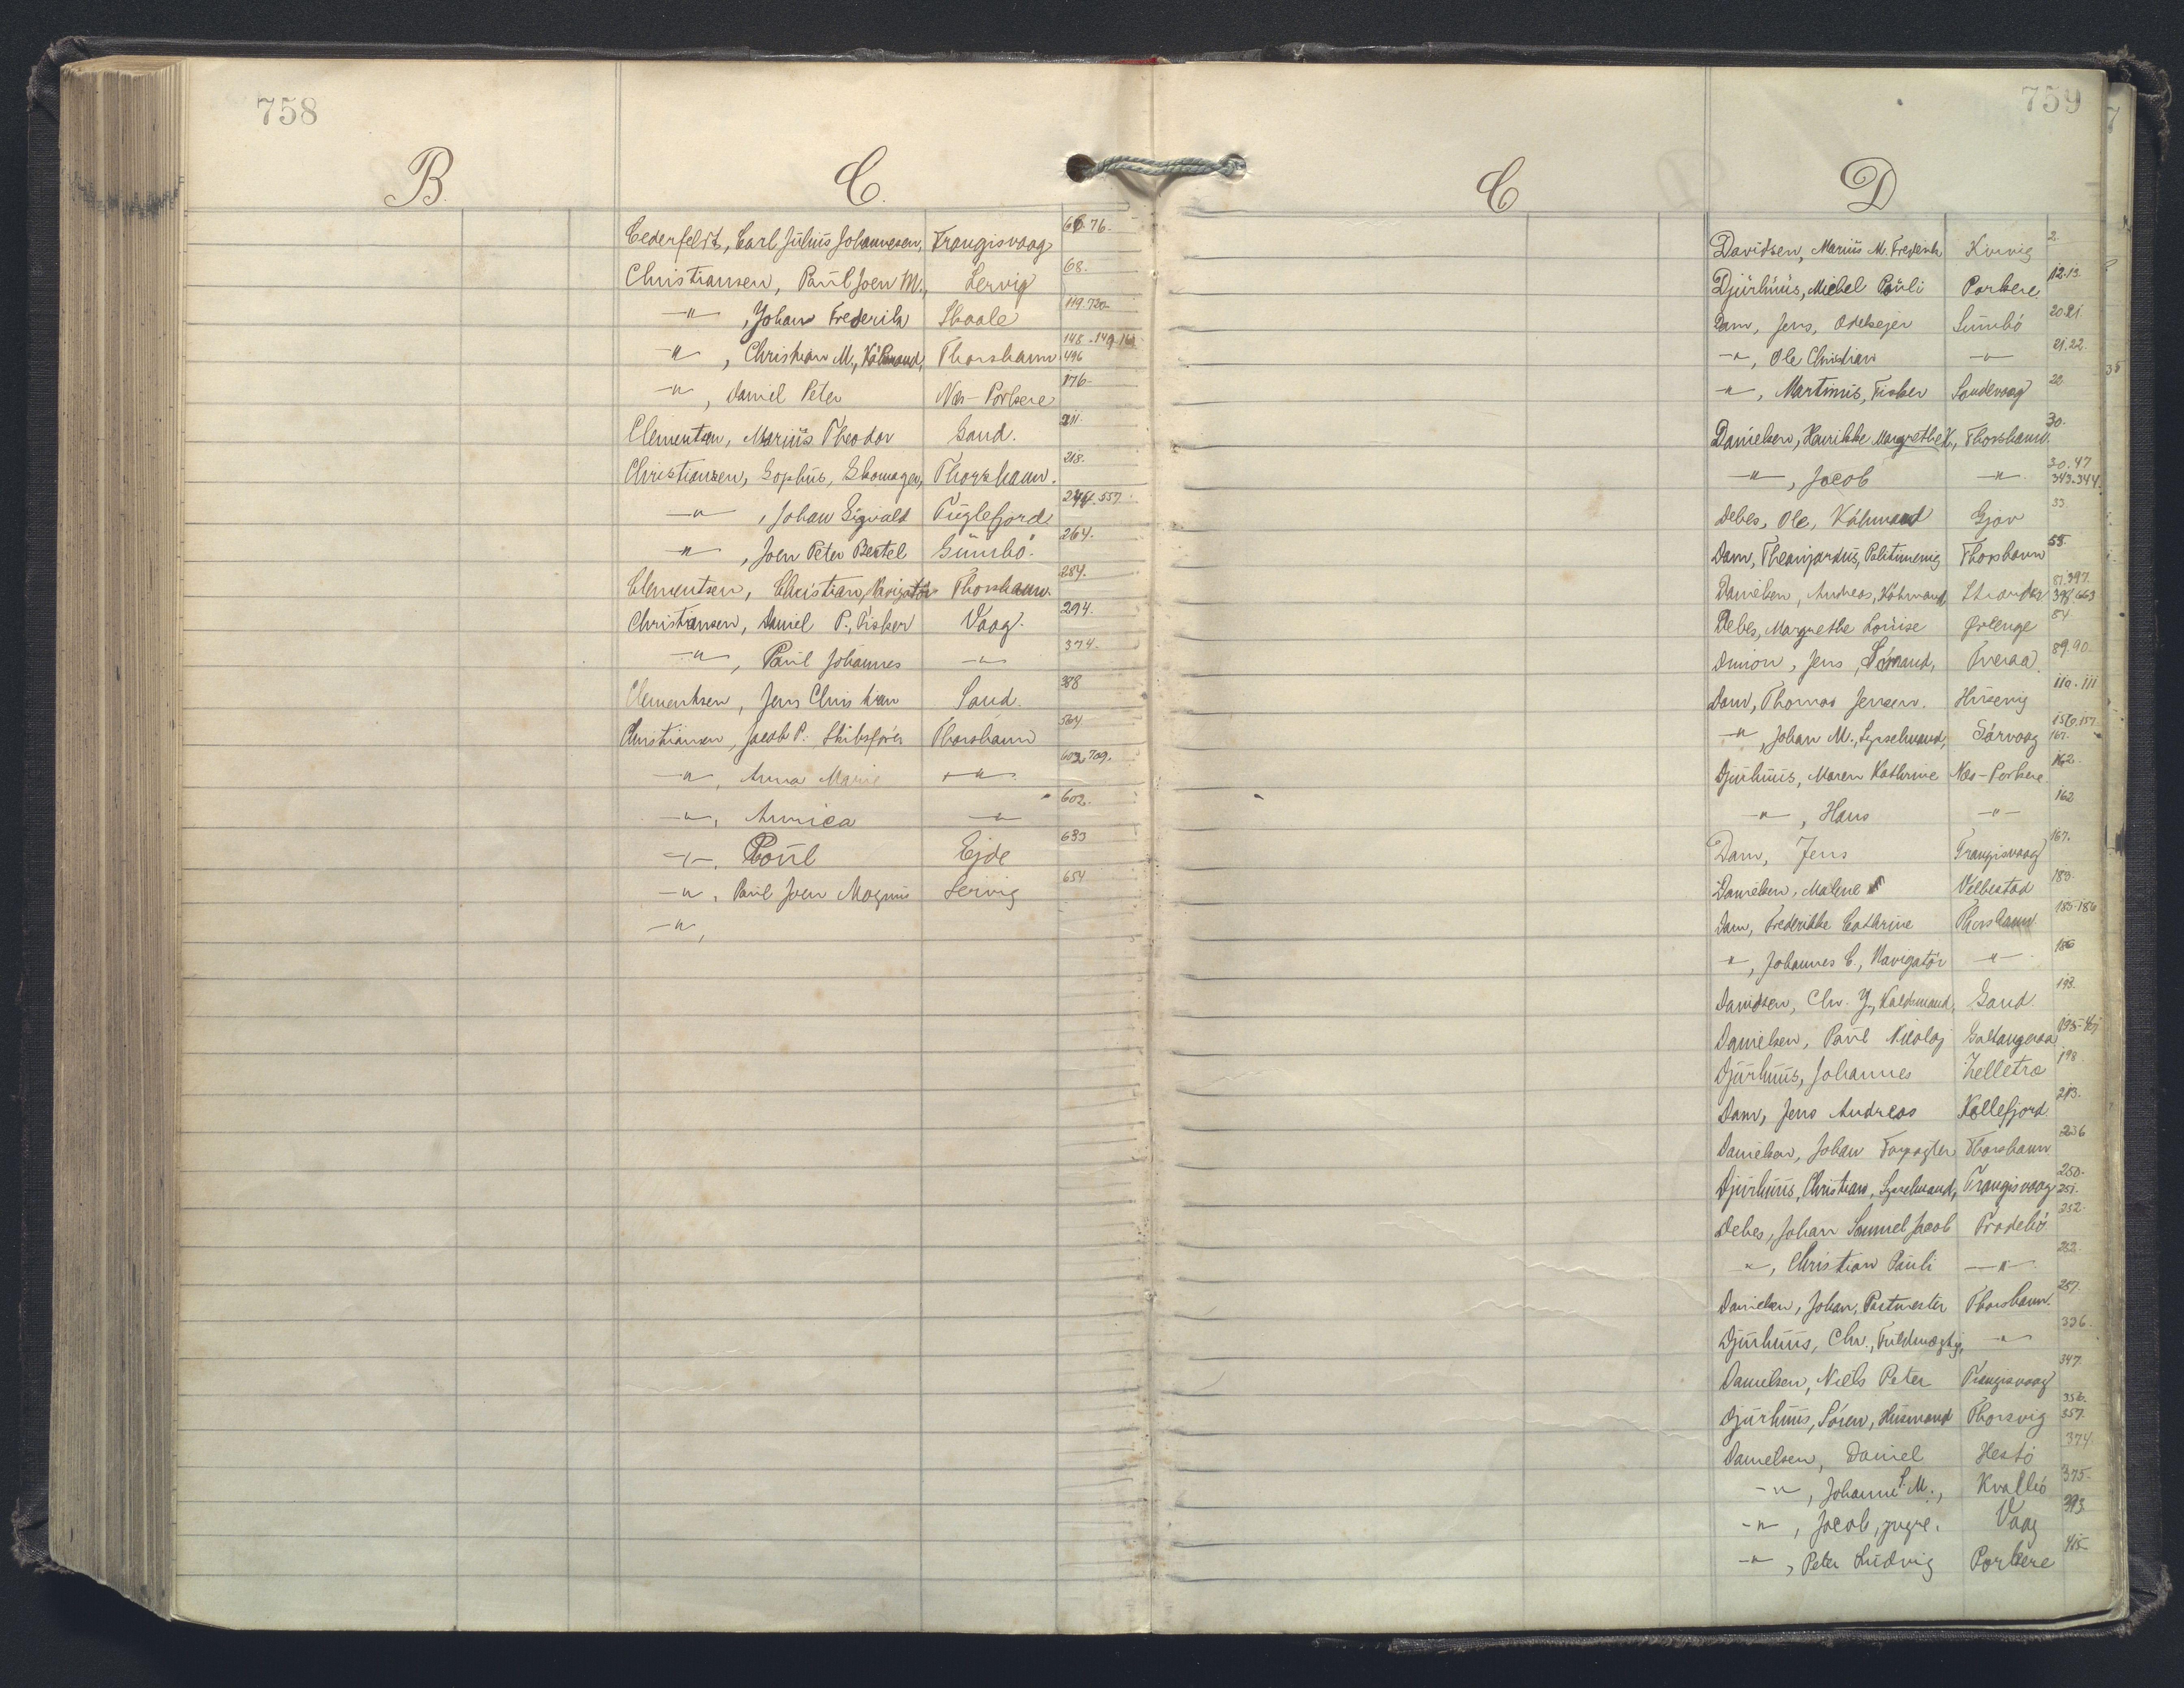 758
B.
C.
Cederfeldt, Carl Julius Johannesen, Frangisvaag 76.
Christiansen, Paul Joen M., Lervig 68.
—"—, Johan Frederik Skaale 119.720.
—"—, Christian M., Købmand, Thorshavn 148.149.
496
—"—, Daniel Peter Næs-Porkere 176.
Clementsen, Marius Theodor Sand. 211.
Christiansen, Sophus, Skomager, Thorshavn. 218.
—"—, Johan Sigvald Fuglefjord 557.
—"—, Joen Peter Bertel Sumbø. 264.
Clementsen, Christian, Navigatør Thorshavn. 284.
Christiansen, Daniel P., Fisker Vaag. 294.
—"—, Paul Johannes —"— 374.
Clementsen, Jens Christian Sand. 388
Christiansen, Jacob P. Skibsfører Thorshavn 564
—"—, Anna Marie —"— 602.709.
—"—, Annica —"— 602.
—"—, Poul Ejde 633
—"—, Paul Joen Magnus Lervig 654
—"—,
759
C
D
Davidsen, Marius M. Frederik Kvivig 2.
Djurhuus, Michel Pauli Porkere 12.13.
Dam, Jens, Odelsejer Sumbø 20.21.
—"—, Ole Christian —"— 21.22.
—"—, Martinus, Fisker Sandevaag 22
Danielsen, Henrikke Margrethe K., Thorshavn. 30.
—"—, Jacob —"— 30.47
343.344.
Debes, Ole, Købmand Gjov 33
Dam, Politimænd Thorshavn 58.
Danielsen, Andreas, Købmand, Strander 81.397.
663
Debes, Margrethe Louise Ørlenge 84.
Dimon, Jens, Tveraa 89.90.
Dam, Thomas Jensen. Husevig 110.111
—"—, Johan M., Sysselmand, Sørvaag 156.157.
161.
Djurhuus, Maren Kathrine Næs-Porkere. 162.
—"—, Hans —"— 162
Dam, Jens Trangisvaag 167.
Danielsen, Malene Velbestad 183.
Dam, Frederikke Cathrine Thorshavn. 185.186
—"—, Johannes C., Navigatør —"— 186
Davidsen, Chr. Y., Sand. 193.
Danielsen, Paul Nicolaj Saltangeraa 195.
Djurhuus, Johannes Zelletræ 198.
Dam, Jens Andreas Kollefjord 213.
Danielsen, Johan Forpagter Thorshavn 236
Djurhuus, Christian, Sysselmand, Trangisvaag 250.
251.
Debes, Johan Samuel Jacob Frodebø 252.
—"—, Christian Pauli —"— 252.
Danielsen, Johan, Postmester Thorshavn. 257.
Djurhuus, Chr., Fuldmægtig, —"— 336.
Danielsen, Niels Peter Trangisvaag 347.
Djurhuus, Søren, Husmand Thorsvig 356.
357.
Danielsen, Daniel Hestø 374.
—"—, Johanne S. M., Kvalbø 375.
—"—, Jacob, yngre. Vaag 393.
—"—, Peter Ludvig Porkere 415.